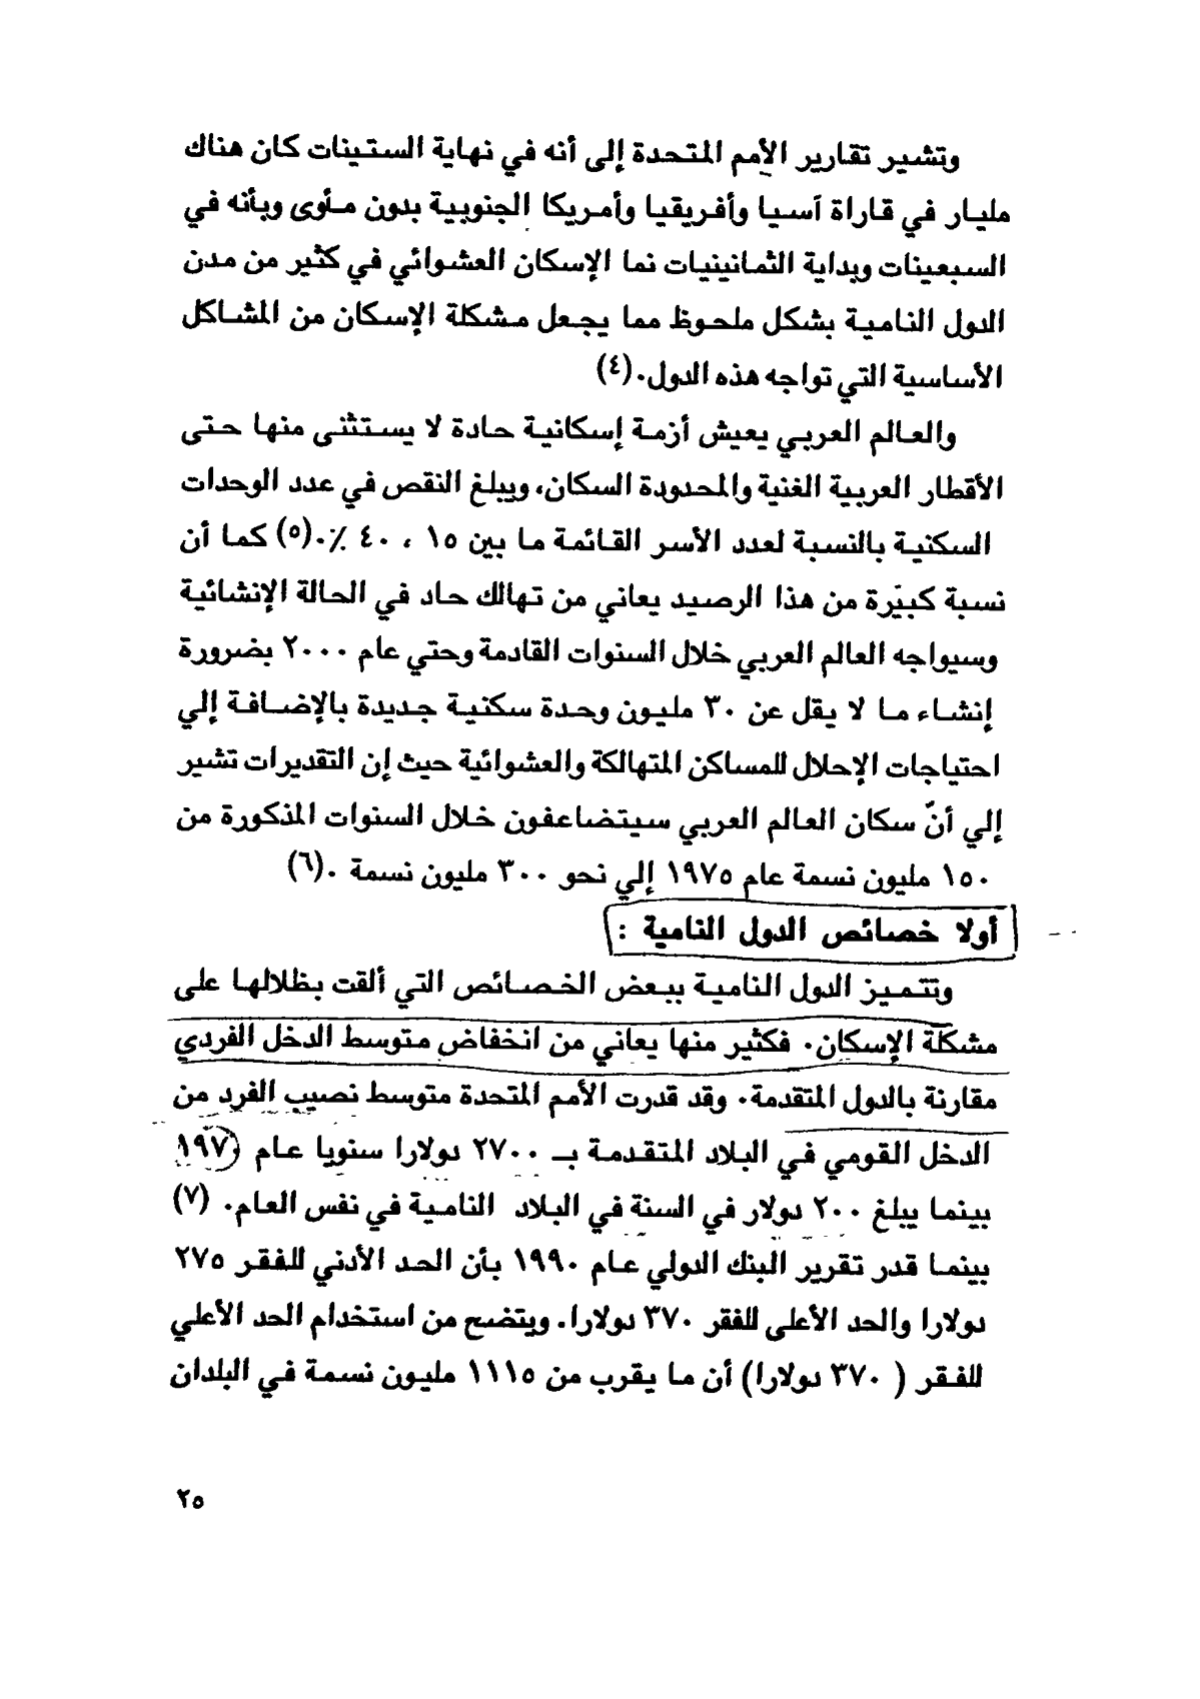 وتشير تقارير الأمم المتحدة إلى أنه في نهاية الستينات كان هناك
مليار في قاراة آسيا وأفريقيا وأمريكا الجنوبية بدون مأوى وبأنه في
السبعينات وبداية الثمانينيات نما الإسكان العشوائي في كثير من مدن
الدول النامية بشكل ملحوظ مما يجعل مشكلة الإسكان من المشاكل
الأساسية التي تواجه هذه الدول. (٤)
والعالم العربي يعيش أزمة إسكانية حادة لا يستثنى منها حتى
الأقطار العربية الغنية والمحدودة السكان، ويبلغ النقص في عدد الوحدات
السكنية بالنسبة لعدد الأسر القائمة ما بين ١٥ ، ٤٠ ٪. (٥) كما أن
نسبة كبيرة من هذا الرصيد يعاني من تهالك حاد في الحالة الإنشائية
وسيواجه العالم العربي خلال السنوات القادمة وحتي عام ٢٠٠٠ بضرورة
إنشاء ما لا يقل عن ٣٠ مليون وحدة سكنية جديدة بالإضافة إلي
احتياجات الإحلال للمساكن المتهالكة والعشوائية حيث إن التقديرات تشير
إلي أنّ سكان العالم العربي سيتضاعفون خلال السنوات المذكورة من
١٥٠ مليون نسمة عام ١٩٧٥ إلي نحو ٣٠٠ مليون نسمة . (٦)
أولا خصائص الدول النامية :
وتتميز الدول النامية ببعض الخصائص التي ألقت بظلالها على
مشكلة الإسكان. فكثير منها يعاني من انخفاض متوسط الدخل الفردي
مقارنة بالدول المتقدمة. وقد قدرت الأمم المتحدة متوسط نصيب الفرد من
الدخل القومي في البلاد المتقدمة بـ ٢٧٠٠ دولارا سنويا عام ١٩٧٠
بينما يبلغ ٢٠٠ دولار في السنة في البلاد النامية في نفس العام. (٧)
بينما قدر تقرير البنك الدولي عام ١٩٩٠ بأن الحد الأدني للفقر ٢٧٥
دولارا والحد الأعلى للفقر ٣٧٠ دولارا. ويتضح من استخدام الحد الأعلي
للفقر ( ٣٧٠ دولارا) أن ما يقرب من ١١١٥ مليون نسمة في البلدان
٢٥